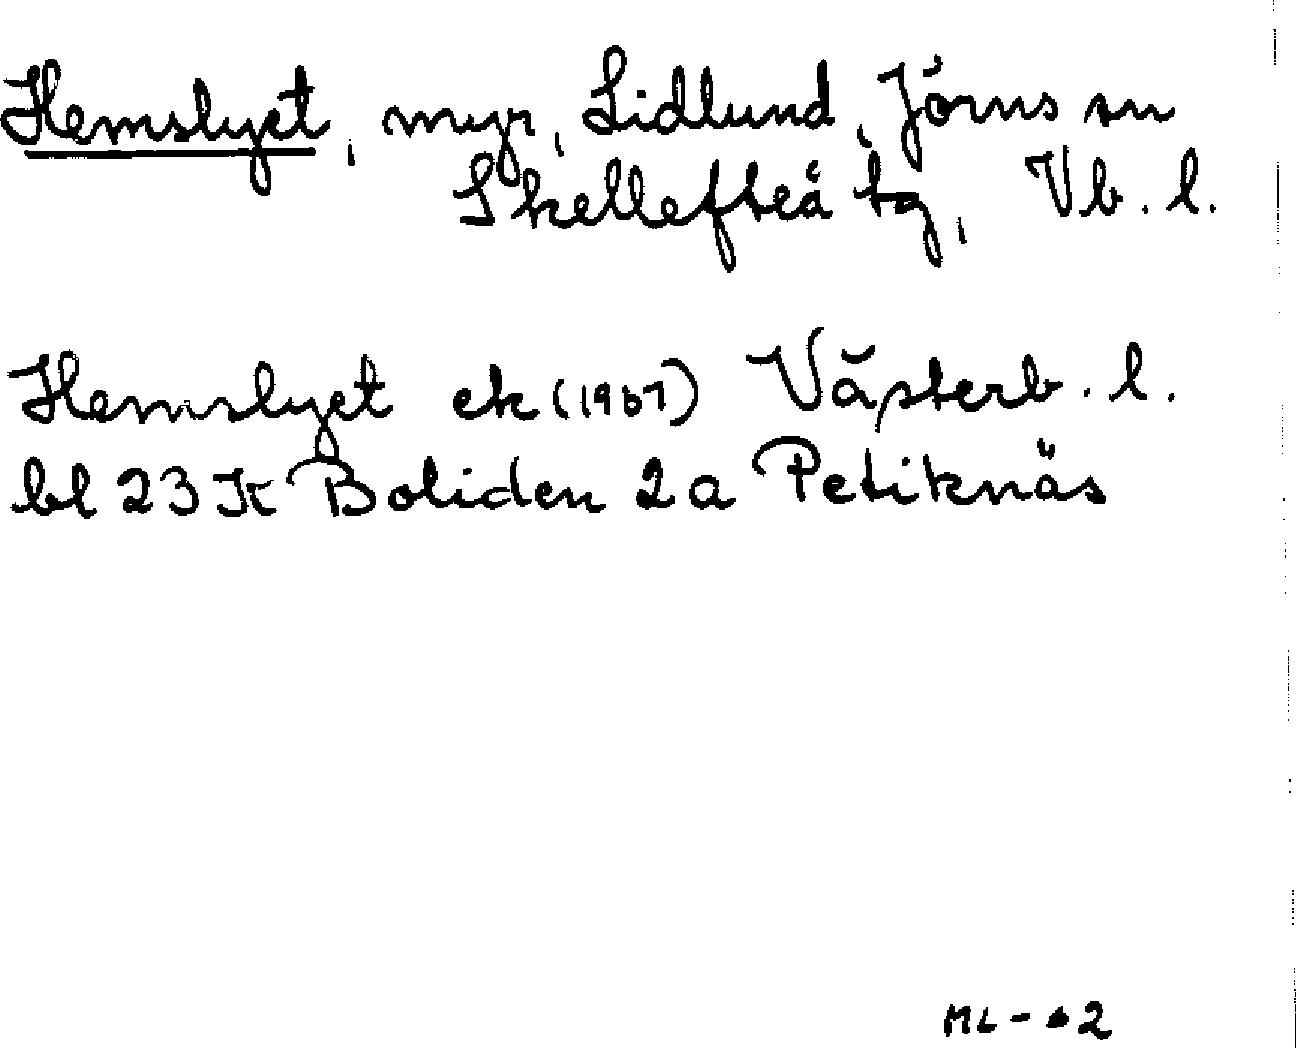 Hemslyet, myr, Lidlund, Jörns sn
Skellefteå tg, Vb. l.
Hemslyet ek (1967) Västerb. l.
bl 23 K Boliden 2a Petiknäs